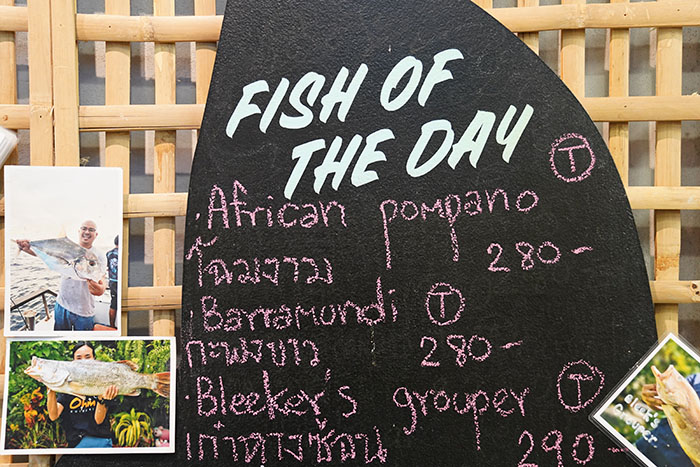 FISH OF
THE DAY
·African pompano Ⓣ
โฉมงาม 280-
·Barramundi Ⓣ
กะพงขาว 280-
·Bleeker's grouper Ⓣ
เก๋าดางซ้อน 290